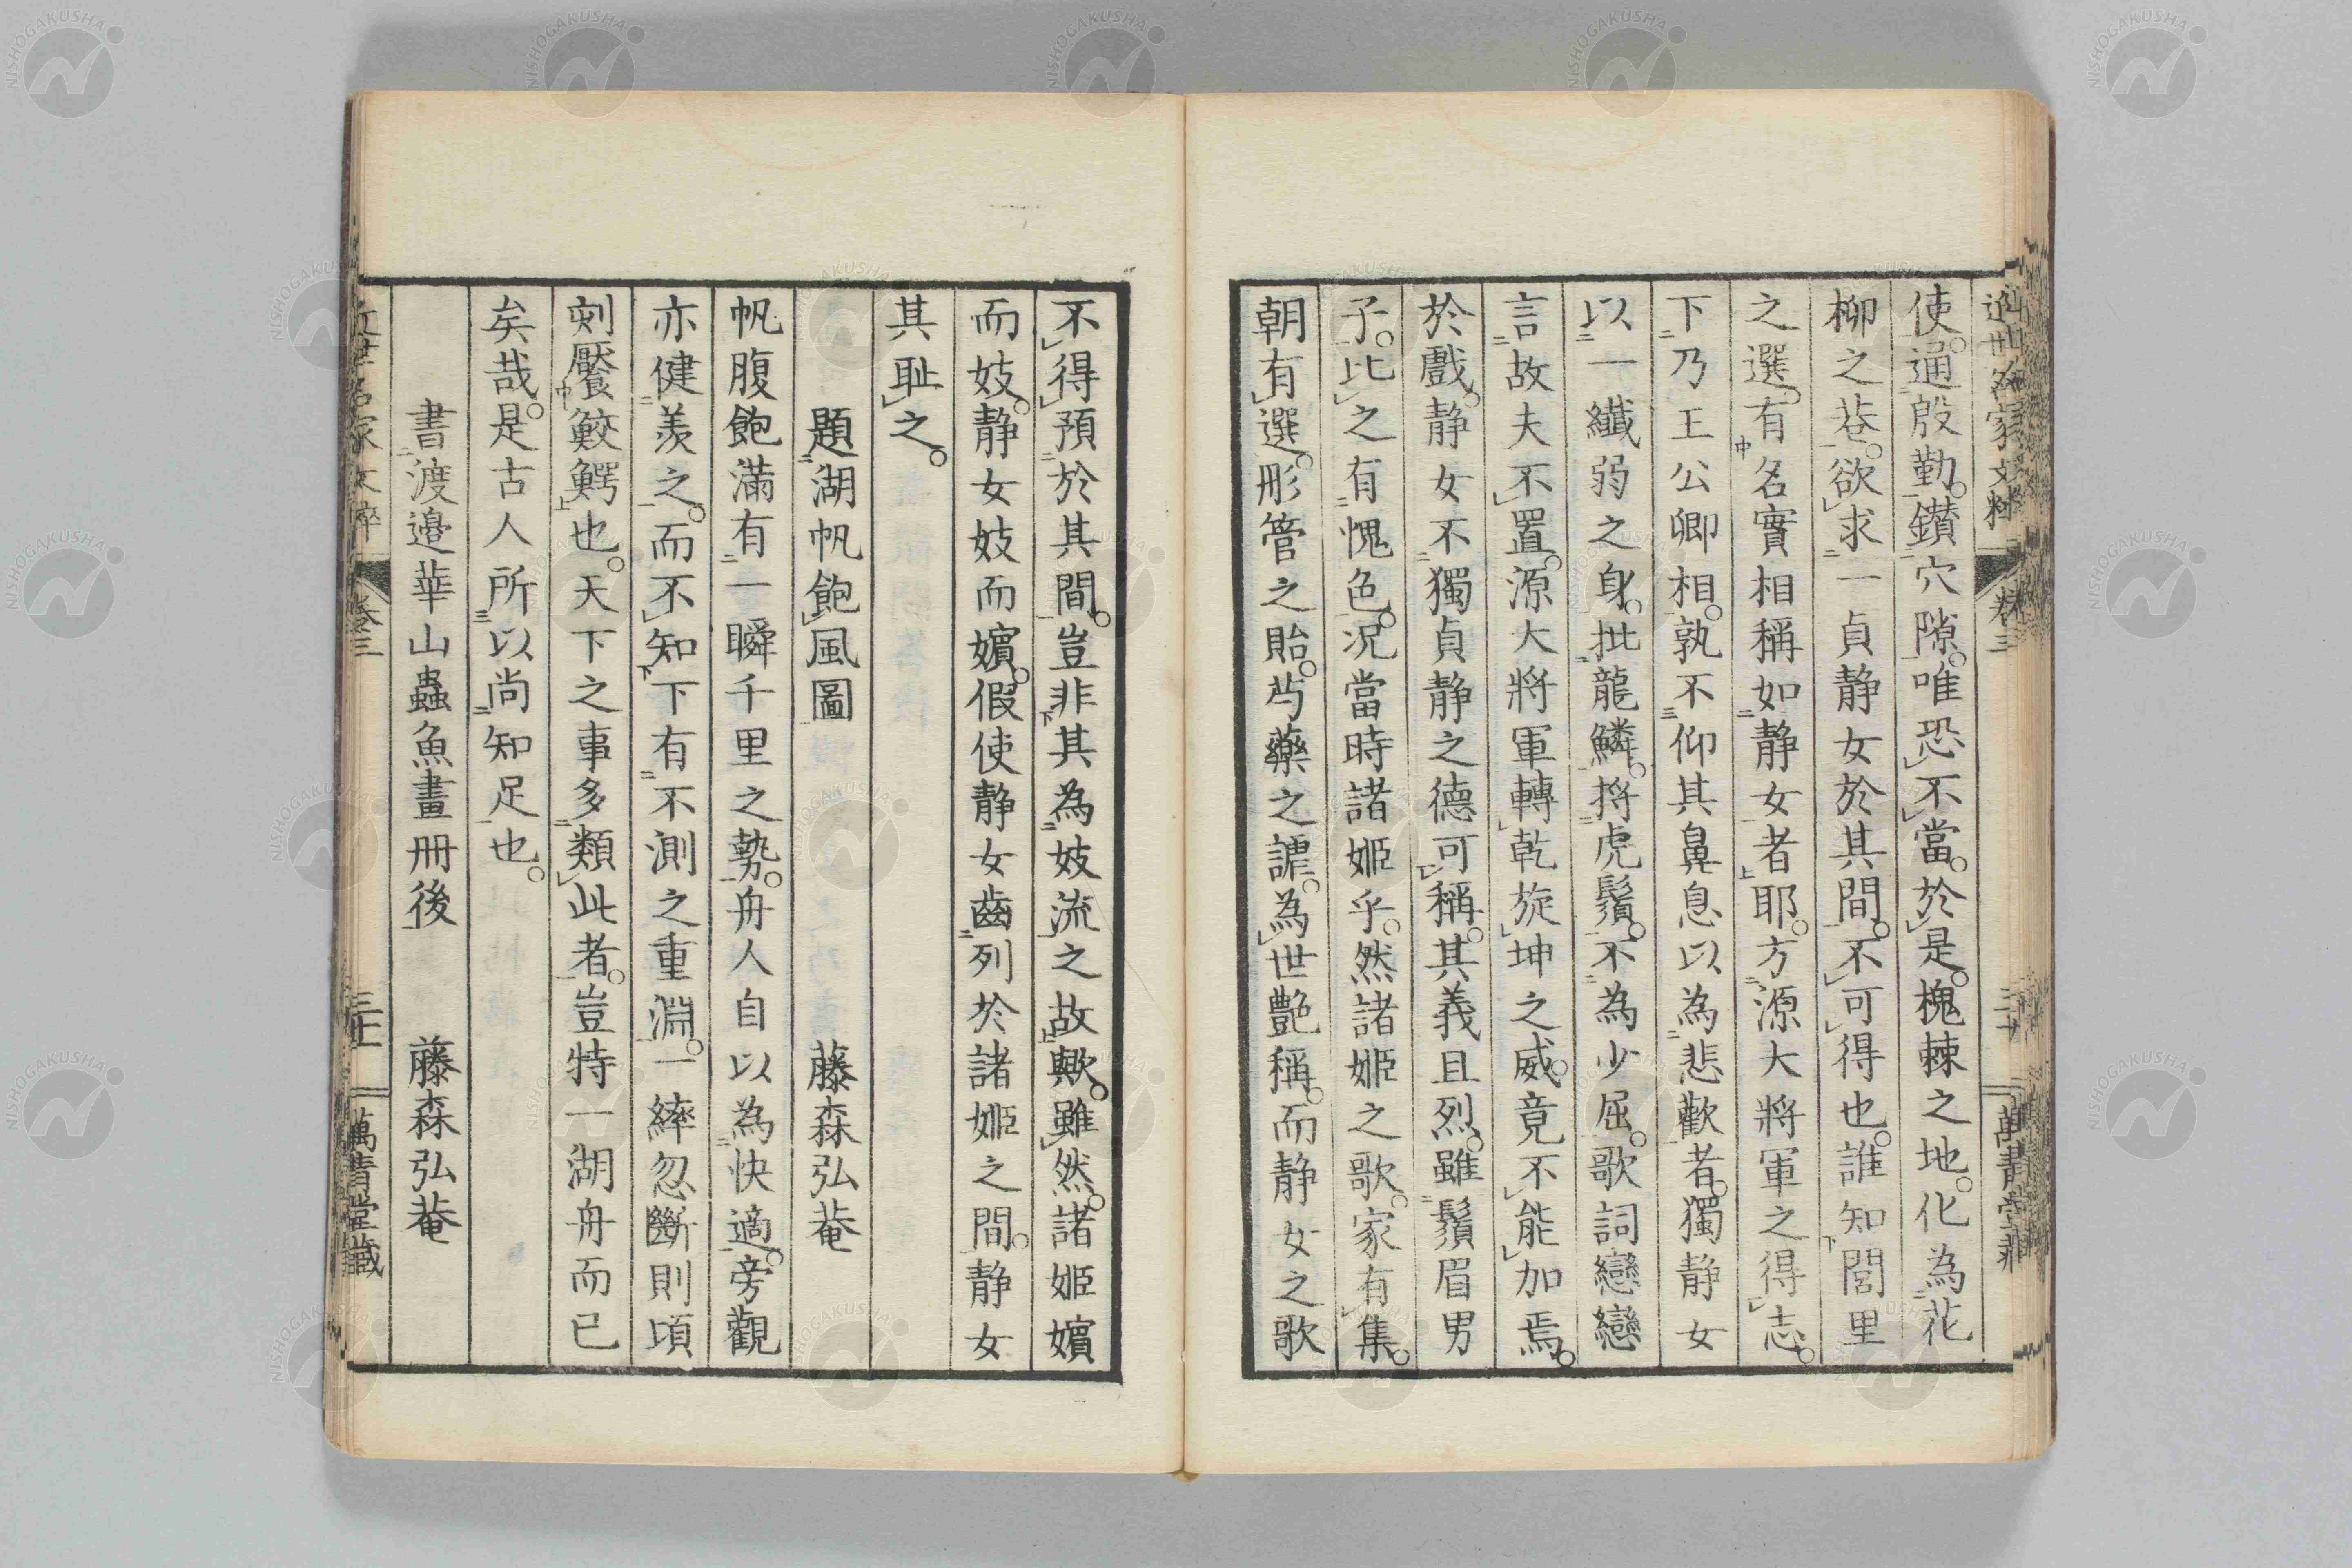 近世名家文粹 卷三 三十 萬青堂藏
使。通殷勤。鑚穴隙。唯恐不當。於是。槐棘之地。化為花
柳之巷。欲求一貞静女於其間。不可得也。誰知閭里
之選。有名實相稱如静女者耶。方源大將軍之得志。
下乃王公卿相。孰不仰其鼻息以為悲歡者。獨静女
以一纖弱之身。批龍鱗。捋虎鬚。不為少屈。歌詞戀戀
言故夫不置。源大將軍轉乾旋坤之威。竟不能加焉。
於戲。静女不獨貞静之德可稱。其義且烈。雖鬚眉男
子。比之有愧色。况當時諸姬乎。然諸姬之歌。家有集。
朝有選。彤管之貽。芍藥之謔。為世艷稱。而静女之歌
不得預於其間。豈非其為妓流之故歟。雖然。諸姬嬪
而妓。静女妓而嬪。假使静女齒列於諸姬之間。静女
其恥之。
題湖帆飽風圖 藤森弘菴
帆腹飽滿有一瞬千里之勢。舟人自以為快適。旁觀
亦健羨之。而不知下有不測之重淵。一繂忽斷則頃
刻饜鮫鰐也。天下之事多類此者。豈特一湖舟而已
矣哉。是古人所以尚知足也。
書渡邉華山蟲魚畫冊後 藤森弘菴
近世名家文粹 卷三 三十一 萬青堂藏
NISHOGAKUSHA